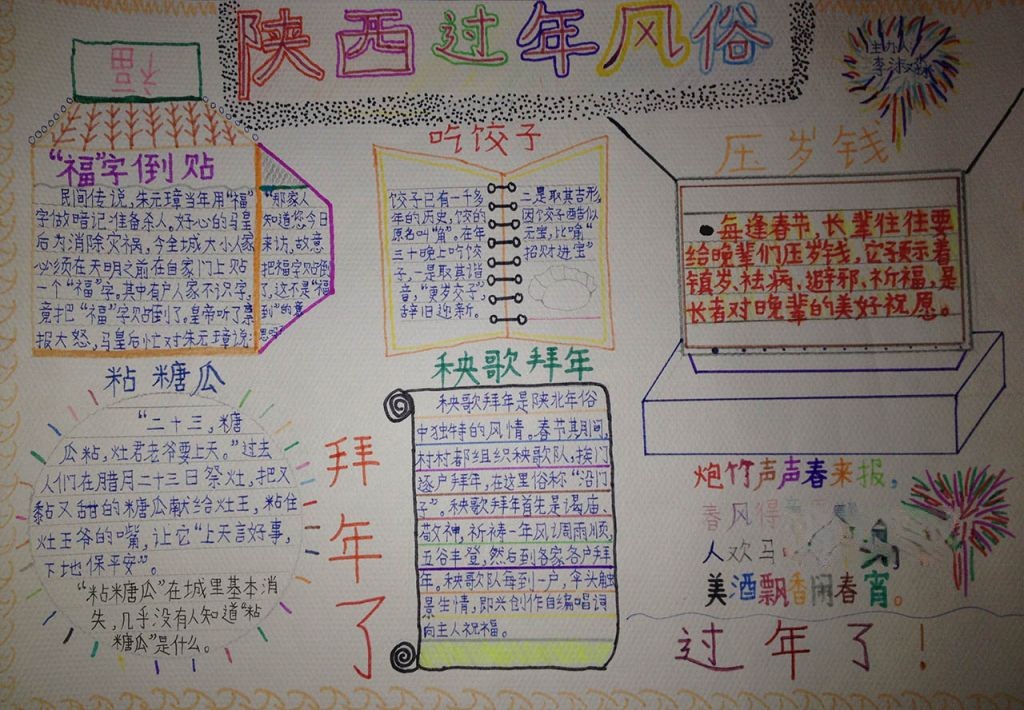 陕西过年风俗
主办人
李淑
福
“福”字倒贴
民间传说,朱元璋当年用“福”
字做暗记准备杀人。好心的马皇
后为消除灾祸,令全城大小人家
必须在天明之前在自家门上贴
一个“福”字。其中有户人家不识字,
竟把“福”字贴倒了。皇帝听了禀
报大怒,马皇后忙对朱元璋说:
“那家人
知道您今日
来访,故意
把福字贴倒
了,这不是“福
到”的意
思吗?
吃饺子
饺子已有一千多
年的历史,饺的
原名叫“角”。在年
三十晚上吃饺
子,一是取其谐
音,“更岁饺子”,
辞旧迎新。
二是取其吉形,
因饺子酷似
元宝,比喻“
招财进宝”
压岁钱
每逢春节,长辈往往要
给晚辈们压岁钱,它预示着
镇岁、祛病、避邪、祈福,是
长者对晚辈的美好祝愿。
粘糖瓜
“二十三,糖
瓜粘,灶君老爷要上天。”过去
人们在腊月二十三日祭灶,把又
黏又甜的糖瓜献给灶王,粘住
灶王爷的嘴,让它“上天言好事,
下地保平安”。
“粘糖瓜”在城里基本消
失,几乎没有人知道“粘
糖瓜”是什么。
拜年了
秧歌拜年
秧歌拜年是陕北年俗
中独特的风情。春节其期间,
村村都组织秧歌队,挨门
逐户拜年,在这里俗称“沿门
子”。秧歌拜年首先是谒庙、
敬神,祈祷一年风调雨顺,
五谷丰登,然后到各家各户拜
年。秧歌队每到一户,伞头触
景生情,即兴创作自编唱词
向主人祝福。
炮竹声声春来报,
春风得
人欢马
美酒飘香闹春宵。
过年了!